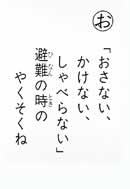 お
「おさない、
かけない、
しゃべらない」
避難の時の
やくそくね